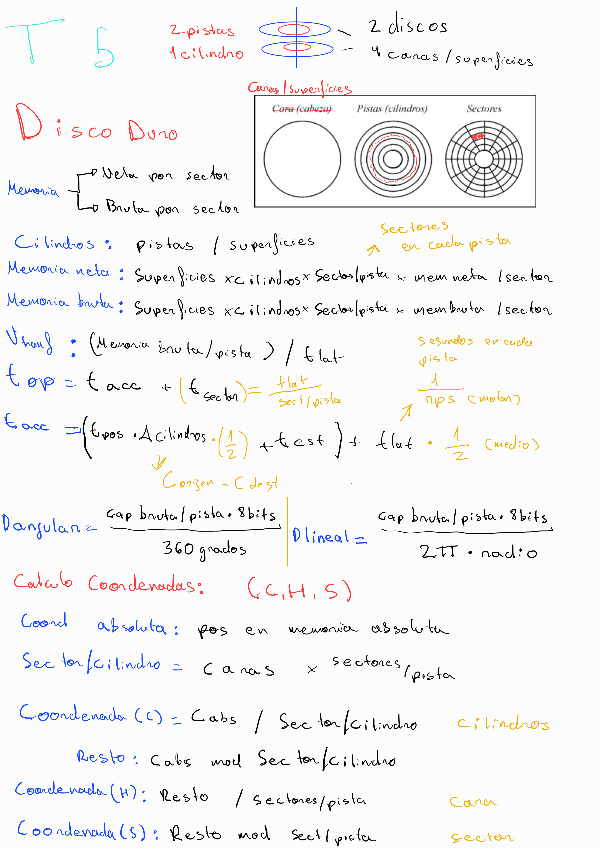 T 5
2 pistas
1 cilindro
2 discos
4 caras / superficies
Disco Duro
Caras/superficies
Cara (cabeza) Pistas (cilindros) Sectores
Memoria
Neta por sector
Bruta por sector
sectores
en cada pista
Cilindros: pistas / superficies
Memoria neta: Superficies x cilindros x Sector/pista x mem neta / sector
Memoria bruta: Superficies x cilindros x Sector/pista x mem bruta / sector
Vtransf : (Memoria bruta/pista) / tlat
segundos en cada
pista
top = tacc + (tsector) = tlat / sect/pista
1 / rps (motor)
tacc = (tpos · Δcilindros · (1/2) + test) + tlat · 1/2 (medio)
Corigen - Cdest
Dangular = cap bruta/pista · 8bits / 360 grados
Dlineal = cap bruta/pista · 8bits / 2π · radio
Calculo Coordenadas: (C, H, S)
Coord absoluta: pos en memoria absoluta
Sector/cilindro = caras x sectores/pista
Coordenada (C) = Cabs / Sector/cilindro cilindros
Resto: Cabs mod Sector/cilindro
Coordenada (H): Resto / sectores/pista Cara
Coordenada (S): Resto mod sect/pista sector